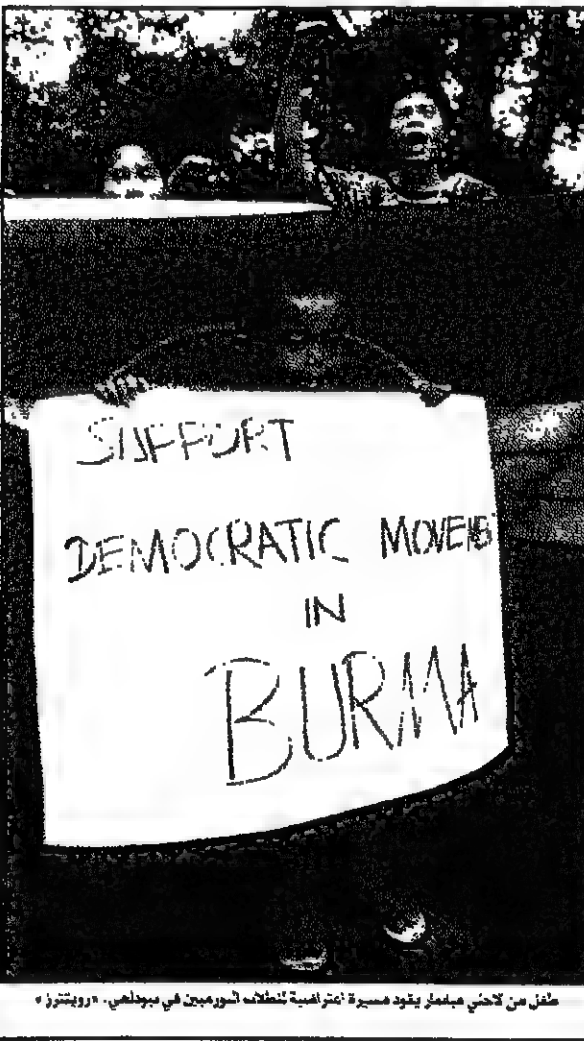 SUPPORT
DEMOCRATIC MOVEME
IN
BURMA
طفل من لاجئي ميانمار يقود مسيرة اعتراضية للطلاب البورميين في نيودلهي. «رويترز»